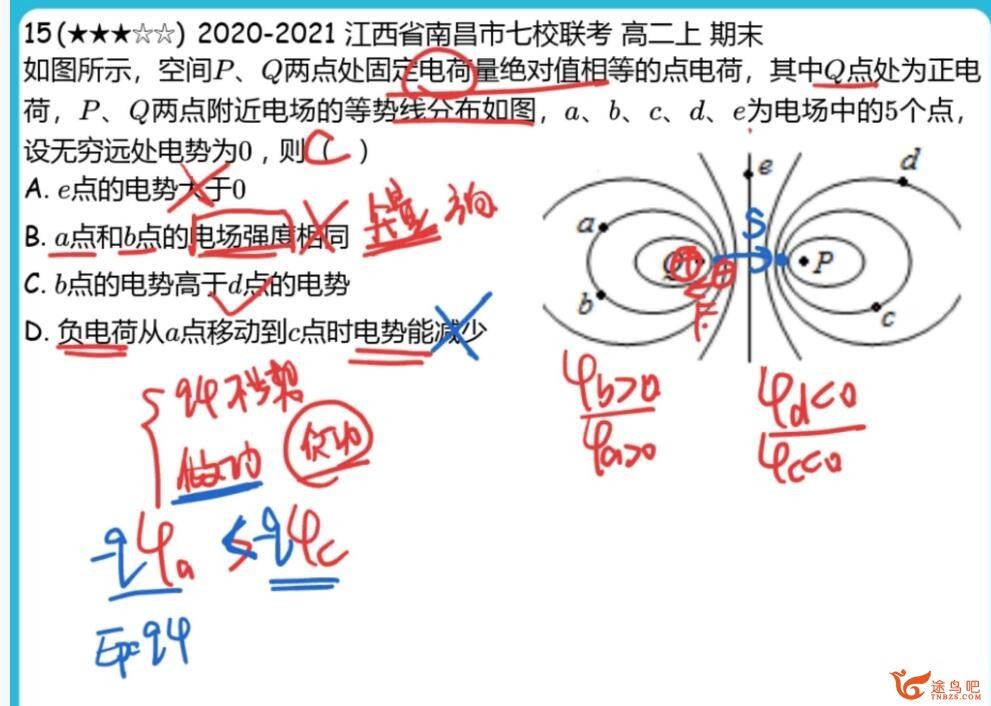 15(★★★☆☆) 2020-2021 江西省南昌市七校联考 高二上 期末
如图所示，空间P、Q两点处固定电荷量绝对值相等的点电荷，其中Q点处为正电
荷，P、Q两点附近电场的等势线分布如图，a、b、c、d、e为电场中的5个点，
设无穷远处电势为0，则（C）
A. e点的电势大于0
B. a点和b点的电场强度相同 矢量 方向
C. b点的电势高于d点的电势
D. 负电荷从a点移动到c点时电势能减少
e
d
a
S
Q
P
b
c
F
φb>0
φd<0
φa>0
φc<0
qφ
做功
-qφa
-qφc
Ep=qφ
途鸟吧
TNBZS.COM